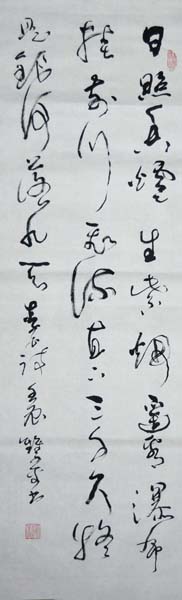 日照香爐生紫烟遙看瀑布
掛前川飛流直下三千尺疑
是銀河落九天李白詩壬辰書